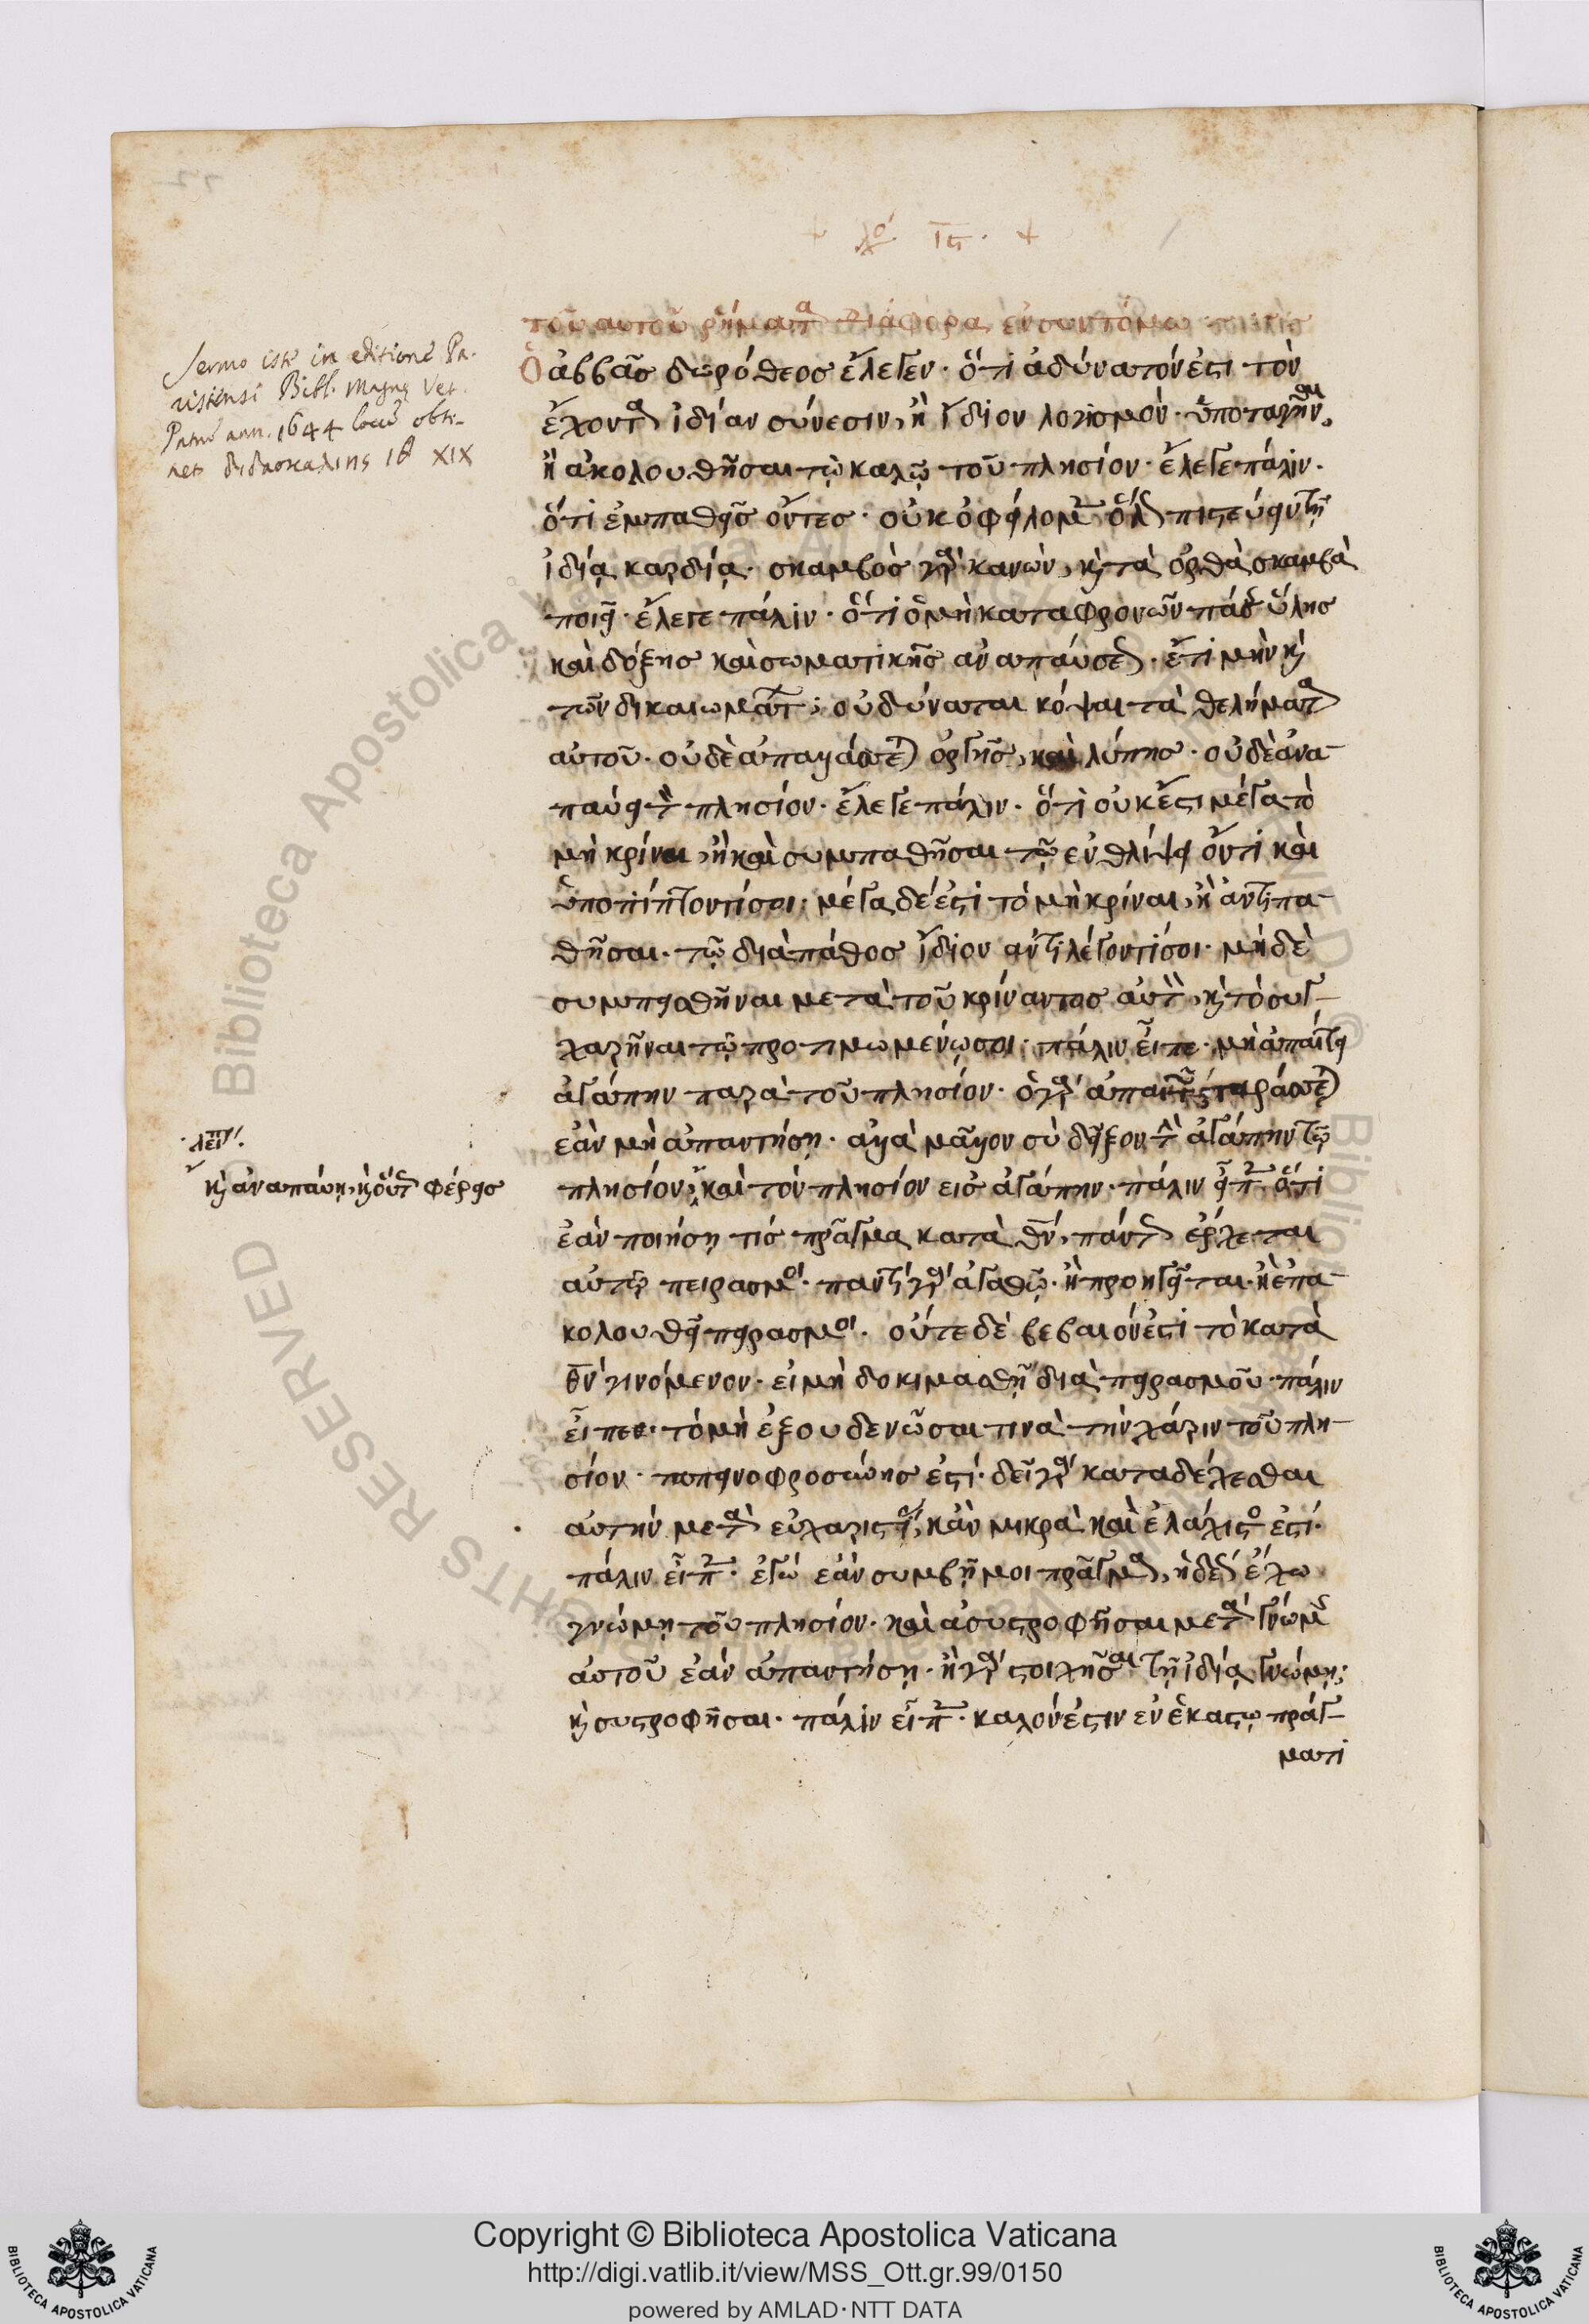 + λό. ις. +
τοῦ αυτοῦ ῥήματα διάφορα ἐν συντόμω
Ὁ ἀββᾶσ δωρόθεοσ ἔλεγεν· ὅτι ἀδύνατόν ἐστι τὸν
ἔχοντα ἰδίαν σύνεσιν, ἢ ἴδιον λογισμὸν· ὑποταγῆναι,
ἢ ἀκολουθῆσαι τῷ καλῷ τοῦ πλησίον· ἔλεγε πάλιν·
ὅτι ἐμπαθεῖσ ὄντεσ· οὐκ ὀφείλομεν ὅλως πιστεύειν τῇ
ἰδίᾳ καρδίᾳ· σκαμβὸσ γὰρ κανὼν, κὶ τὰ ὀρθὰ σκαμβὰ
ποιεῖ· ἔλεγε πάλιν· ὅτι ὁ μὴ καταφρονῶν πάσης ὕλησ
καὶ δόξησ καὶ σωματικῆσ ἀναπαύσεως· ἔτι μὴν κὶ
τῶν δικαιωμάτων; οὐ δύναται κόψαι τὰ θελήματα
αὐτοῦ· οὐδὲ ἀπαλλάττεται ὀργῆσ, καὶ λύπησ· οὐδὲ ἀνα-
παύει τὸν πλησίον· ἔλεγε πάλιν· ὅτι οὐκ ἔστι μέγα τὸ
μὴ κρίναι, ἢ καὶ συμπαθῆσαι τῷ ἐν θλίψει ὄντι καὶ
ὑποπίπτοντί σοι· μέγα δέ ἐστι τὸ μὴ κρίναι, ἢ ἀντιπα-
θῆσαι· τῷ διὰ πάθοσ ἴδιον ἀντιλέγοντί σοι· μὴ δὲ
συμπεισθῆναι μετὰ τοῦ κρίναντοσ αὐτὸν, κὶ τὸ συγ-
χαρῆναι τῷ προτιμωμένῳ σοι· πάλιν εἶπε· μὴ ἀπαίτει
ἀγάπην παρὰ τοῦ πλησίον· ὁ γὰρ ἀπαιτῶν, ταράττεται
ἐὰν μὴ ἀπαντήσῃ· ἀλλὰ μᾶλλον σὺ δεῖξον τὴν ἀγάπην τῷ
πλησίον, καὶ τὸν πλησίον εισ ἀγάπην· πάλιν εἶπεν ὅτι
ἐὰν ποιήσῃ τίσ πρᾶγμα κατὰ θν̄, πάντως ἔρχεται
αὐτῷ πειρασμός· παντὶ γὰρ ἀγαθῷ· ἢ προηγεῖται· ἢ ἐπα-
κολουθεῖ πειρασμός· οὔτε δὲ βεβαιόν ἐστι τὸ κατὰ
θν̄ γινόμενον· εἰ μὴ δοκιμασθῇ διὰ πειρασμοῦ· πάλιν
εἶπεν· τὸ μὴ ἐξουδενῶσαι τινὰ τὴν χάριν τοῦ πλη-
σίον· ταπεινοφροσύνησ ἐστί· δεῖ γὰρ καταδέχεσθαι
αὐτὴν μετὰ εὐχαριστίας, κἀν μικρὰ καὶ ἐλάχιστος ἐστί·
πάλιν εἶπεν· ἐγώ ἐὰν συμβῇ μοι πρᾶγμα, ἡδέως ἔχω
γνώμῃ τοῦ πλησίον· καὶ ἀσυστροφῆσαι μετὰ γνώμης
αὐτοῦ ἐάν ἀπαντήσῃ· ἢ γὰρ στοιχῆσαι τῇ ἰδίᾳ γνώμῃ;
κὶ συστροφῆσαι· πάλιν εἶπεν· καλόν ἐστιν ἐν ἑκαστῳ πράγ-
ματι
Sermo iste in editione Pa-
risiensi Bibl. Magnę Vet.
Patrũ ann. 1644 locũ obti-
net διδασκαλιης ιθ XIX
λεῖπ.
κὶ ἀναπαύῃ, κὶ οὕτως φέρεισ
Copyright © Biblioteca Apostolica Vaticana
http://digi.vatlib.it/view/MSS_Ott.gr.99/0150
powered by AMLAD·NTT DATA
BIBLIOTECA APOSTOLICA VATICANA
BIBLIOTECA APOSTOLICA VATICANA